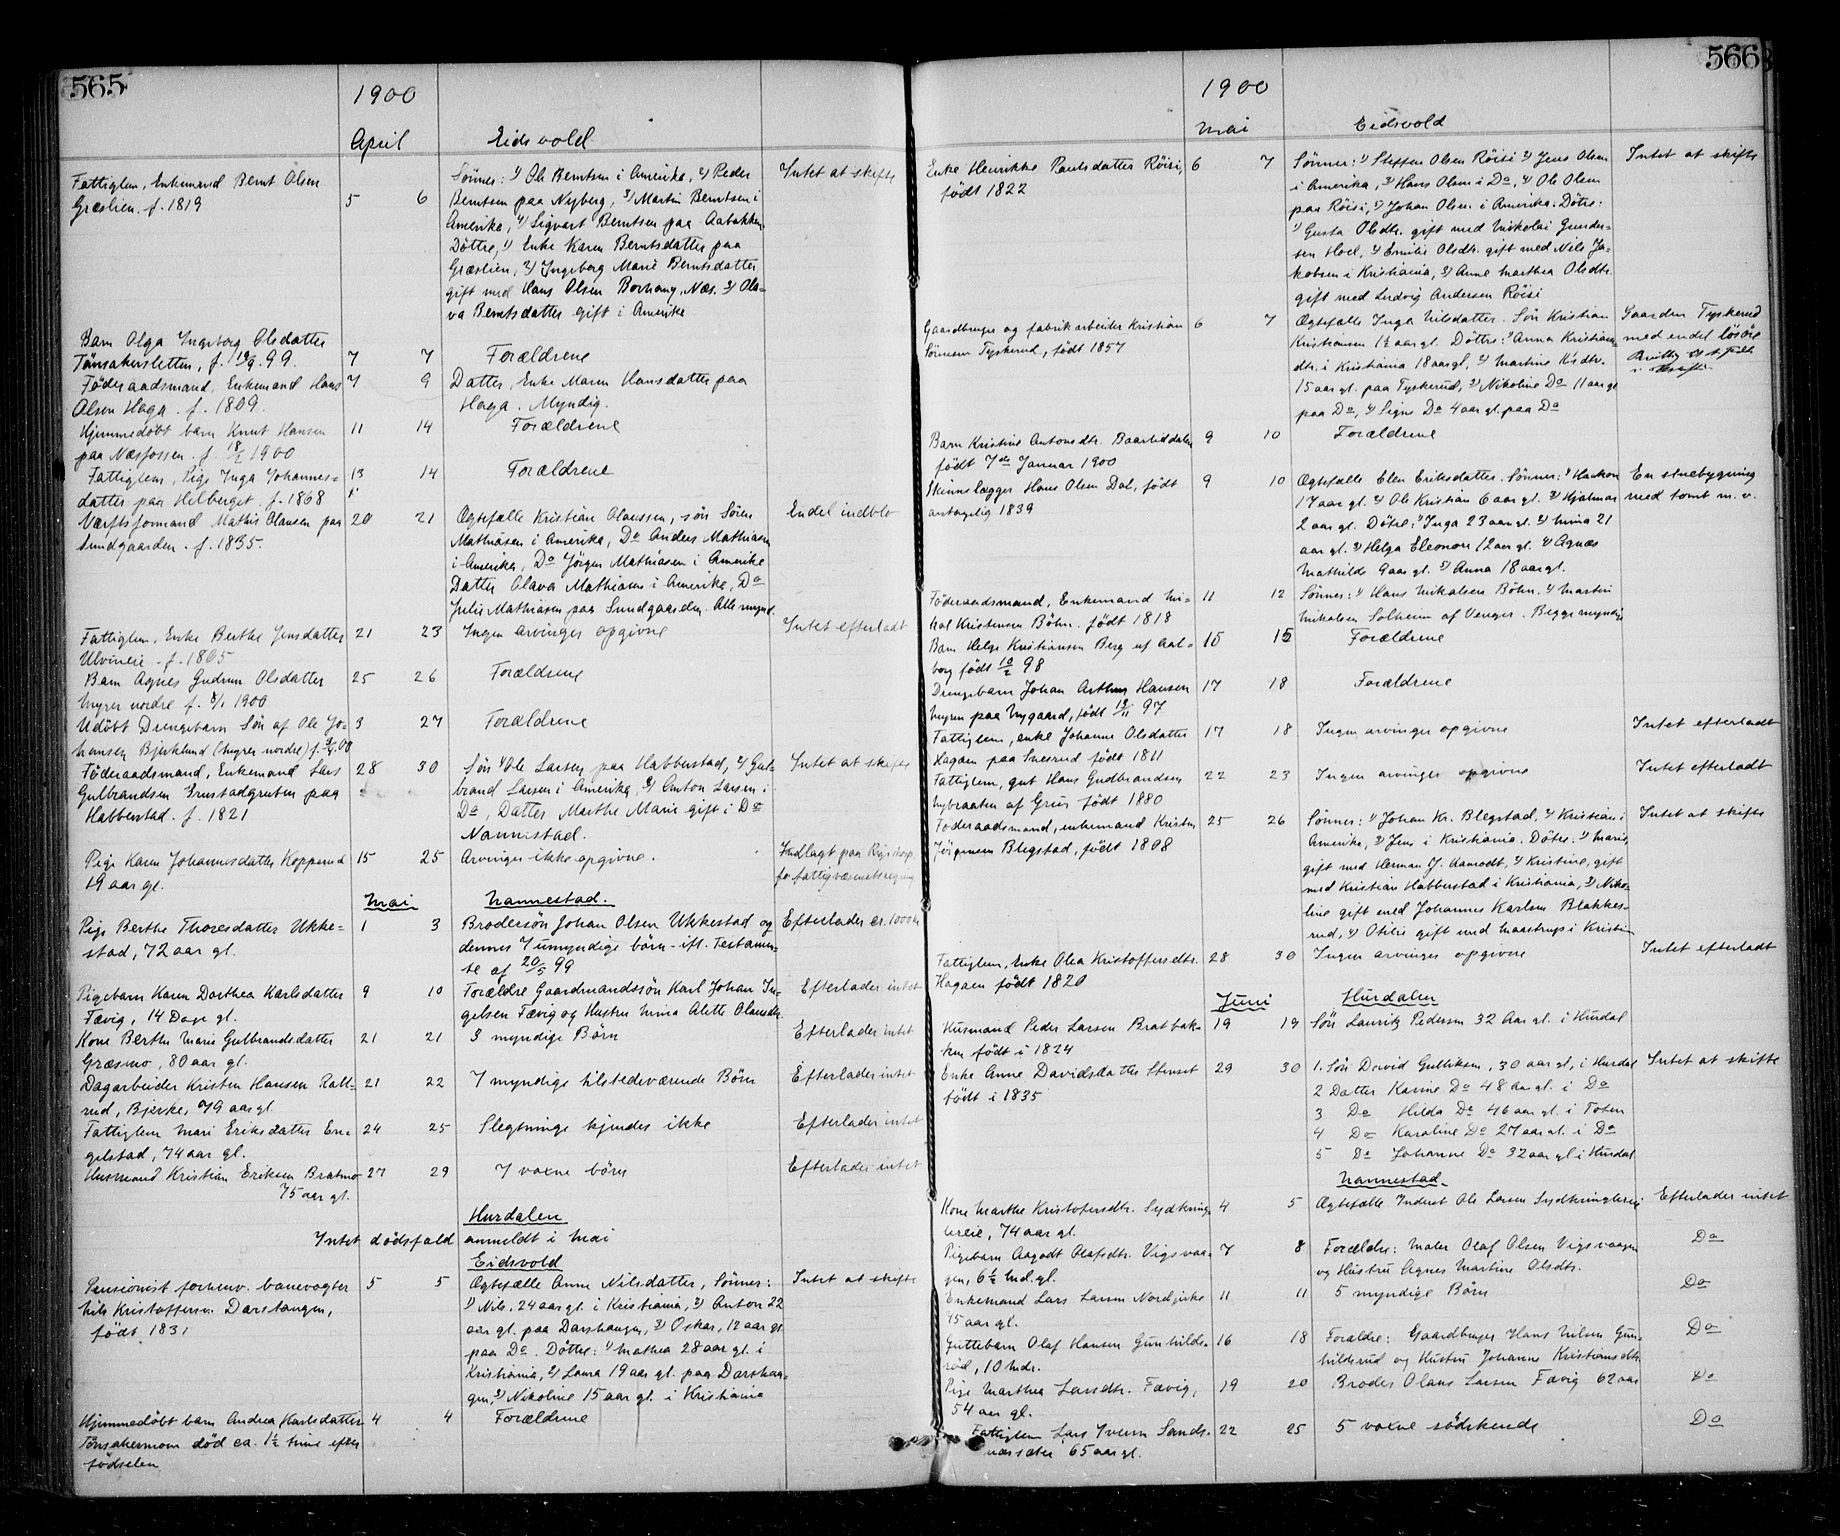 565
1900
April
Eidsvold
Fattiglem, Enkemand Bernt Olsen
Græslien. f. 1819
5 6
Sönner: 1) Ole Berntsen i Amerika, 2) Peder
Berntsen paa Nyberg, 3) Martin Berntsen i
Amerika, 4) Sigvart Berntsen paa Aabakken
Döttre, 1) Enke Karen Berntsdatter paa
Græslien, 2) Ingeborg Marie Berntsdatter
gift med Hans Olsen Borhaug, Næs. 3) Ola-
va Berntsdatter gift i Amerika
Intet at skifte
Barn Olga Ingeborg Olsdatter
Tönsakersletten, f. 19/9.99.
7 7
Forældrene
Föderaadsmand, Enkemand Hans
Olsen Haga. f. 1809.
7 9
Datter, Enke Maren Hansdatter paa
Haga. Myndig.
Hjemmedöbt barn Knut Hansen
paa Næsfossen. f. 18/2 1900
11 14
Forældrene
Fattiglem, Pige Inga Johannes-
datter paa Helberget. f. 1868
13 14
Forældrene
Værftsformand Mathis Olausen paa
Sundgaarden. f. 1835.
20 21
Ægtefælle Kristian Olaussen, sön Sören
Mathiasen i Amerika, Do Anders Mathiasen
i Amerika, Do Jörgen Mathiasen i Amerika
Datter Olava Mathiasen i Amerika, Do
Julie Mathiasen paa Sundgaarden. Alle mynd.
Endel indbo
Fattiglem, Enke Berthe Jensdatter
Ulvineie. f. 1805
21 23
Ingen arvinger opgivne
Intet efterladt
Barn Agnes Gudrun Olsdatter
Myrer nordre f. 8/1 1900
25 26
Forældrene
Udöbt Drengebarn Sön af Ole Jo-
hansen Bjerklund (Myrer nordre) f. 3/4.00
3 27
Forældrene
Föderaadsmand, Enkemand Lars
Gulbrandsen Ernstadgruben paa
Habberstad. f. 1821
28 30
Sön 1) Ole Larsen paa Habberstad, 2) Gul-
brand Larsen i Amerika, 3) Anton Larsen i
Do, Datter Marthe Marie gift i Do
Nannestad.
Intet at skifte
Pige Karen Johannesdatter Kopperud
19 aar gl.
15 25
Arvinger ikke opgivne.
Indlagt paa Rigshosp.
for fattigvæsenets regning
Mai
Nannestad.
Pige Berthe Thoresdatter Ukke-
stad, 72 aar gl.
1 3
Brodersön Johan Olsen Ukkestad og
dennes 7 umyndige börn - ifl. Testamen-
te af 20/5 99
Efterlader ca. 1000 kr
Pigebarn Karen Dorthea Karlsdatter
Fævig, 14 Dage gl.
9 10
Forældre Gaardmandssön Karl Johan In-
gelsen Fævig og Hustru Mina Alette Olausdtr.
Efterlader intet
Kone Berthe Marie Gulbrandsdatter
Græsmo, 80 aar gl.
21 21
3 myndige Börn
Efterlader intet
Dagarbeider Kristen Hansen Ratt-
rud, Bjerke, 79 aar gl
21 22
7 myndige tilstedeværende Börn
Efterlader intet
Fattiglem Mari Eriksdatter En-
gelstad, 74 aar gl.
24 25
Slegtninge kjendes ikke
Efterlader intet
Husmand Kristian Eriksen Bratmo
75 aar gl.
27 29
7 voxne börn
Efterlader intet
Hurdalen
Intet dödsfald anmeldt i Mai
Eidsvold
Pensionist forhenv. banevogter
Nils Kristoffersen Darshaugen,
födt 1831
5 5
Ægtefælle Anne Nilsdatter, Sönner:
1) Nils, 24 aar gl. i Kristiania, 2) Anton 22
aar gl. paa Darshaugen, 3) Oskar, 12 aar gl
paa Do. Döttre: 1) Mathea 28 aar gl. i
Kristiania, 2) Laura 19 aar gl. paa Darshau-
gen, 3) Nikoline 15 aar gl. i Kristiania
Intet at skifte
Hjemmedöbt barn Andrea Karlsdatter
Tönsakermoen död ca. 1½ time efter
födselen
4 4
Forældrene
566
1900
Mai
Eidsvold
Enke Henrikke Paulsdatter Röisi,
födt 1822
6 7
Sönner: 1) Steffen Olsen Röisi 2) Jens Olsen
i Amerika, 3) Hans Olsen i Do, 4) Ole Olsen
paa Röisi, 5) Johan Olsen i Amerika. Dötre:
1) Gusta Olsdtr. gift med Nikolai Gunder-
sen Hoel, 2) Emilie Olsdtr. gift med Nils Ja-
kobsen i Kristiania, 3) Anne Marthea Olsdtr.
gift med Ludvig Andersen Röisi
Intet at skifte
Gaardbruger og fabrikarbeider Kristian
Sörensen Tyskerud, födt 1857
6 7
Ægtefælle Inga Nilsdatter. Sön Kristian
Kristiansen 1½ aar gl. Döttre: 1) Anna Kristians-
dtr. i Kristiania 18 aar gl, 2) Martine K'sdtr.
15 aar gl. paa Tyskerud, 3) Nikoline Do 11 aar gl
paa Do, 4) Signe Do 4 aar gl. paa Do
Gaarden Tyskerud
med endel lösöre
Barn Kristine Antonsdtr. Baarliddalen
födt 7de Januar 1900
9 10
Forældrene
Skinnelægger Hans Olsen Dal, födt
antagelig 1839
9 10
Ægtefælle Elen Eriksdatter. Sönner: 1) Haakon
17 aar gl. 2) Ole Kristian 6 aar gl. 3) Hjalmar
2 aar gl. Dötre: 1) Inga 23 aar gl. 2) Mina 21
aar gl. 3) Helga Eleonore 12 aar gl. 4) Agnæs
Mathilde 9 aar gl. 5) Anna 18 aar gl.
En stuebygning
med tomt m. v.
Föderaadsmand, Enkemand Mi-
kal Kristensen Böhn. födt 1818
11 12
Sönner: 1) Hans Mikalsen Böhn. 2) Martin
Mikalsen Solheim af Venger. Begge myndige
Barn Helge Kristiansen Berg af Aal-
borg födt 10/2 98
15 15
Forældrene
Drengebarn Johan Arthur Hansen
Myren paa Nygaard, födt 19/11 97
17 18
Forældrene
Fattiglem, enke Johanne Olsdatter
Hagaen paa Sneerud födt 1811
17 18
Ingen arvinger opgivne
Intet efterladt
Fattiglem, gut Hans Gudbrandsen
Nybraaten af Grue födt 1880
22 23
Ingen arvinger opgivne
Intet efterladt
Föderaadsmand, enkemand Kristen
Jörgensen Blegstad, födt 1808
25 26
Sönner: 1) Johan Kr. Blegstad, 2) Kristian i
Amerika, 3) Jens i Kristiania. Dötre: 1) Marie,
gift med Herman J. Aamodt, 2) Kristine, gift
med Kristian Habberstad i Kristiania, 3) Niko-
line gift med Johannes Karlsen Blakkes-
rud, 4) Otilie gift med Maastrup i Kristia
Intet at skifte
Fattiglem, Enke Olea Kristoffersdtr.
Hagaen födt 1820
28 30
Ingen arvinger opgivne
Intet efterladt
Juni
Hurdalen
Husmand Peder Larsen Bratbak-
ken födt i 1824
19 19
Sön Lauritz Pedersen 32 Aar gl. i Hurdal
Enke Anne Davidsdatter Stenset
födt i 1835
29 30
1. Sön David Gulliksen, 30 aar gl, i Hurdal
2 Datter Karine Do 48 aar gl. i Do
3 Do Hilda Do 46 aar gl. i Toten
4 Do Karoline Do 27 aar gl. i Do
5 Do Johanne Do 32 aar gl i Hurdal
Intet at skifte
Nannestad.
Kone Marthe Kristofersdtr. Sydkring-
lereie, 74 aar gl.
4 5
Ægtefælle Inderst Ole Larsen Sydkringlereie
Efterlader intet
Pigebarn Aagodt Olafsdtr. Vigsvaa-
gen, 6½ Md. gl.
7 8
Forældre: Maler Olaf Olsen Vigsvaagen
og Hustru Agnes Martine Olsdtr.
Do
Enkemand Lars Larsen Nordjirke
75 aar gl.
11 11
5 myndige Börn
Do
Guttebarn Olaf Hansen Gunhilds-
rud, 10 Mdr.
16 18
Forældre: Gaardbruger Hans Nilsen Gun-
hildsrud og Hustru Johanne Kristiansdtr.
Do
Pige Marthea Larsdtr. Fævig,
54 aar gl.
19 20
Broder Olaus Larsen Fævig 62 aar
Do
Fattiglem Lars Iversen Sands-
næssæter 65 aar gl.
22 25
5 voxne södskende
Do